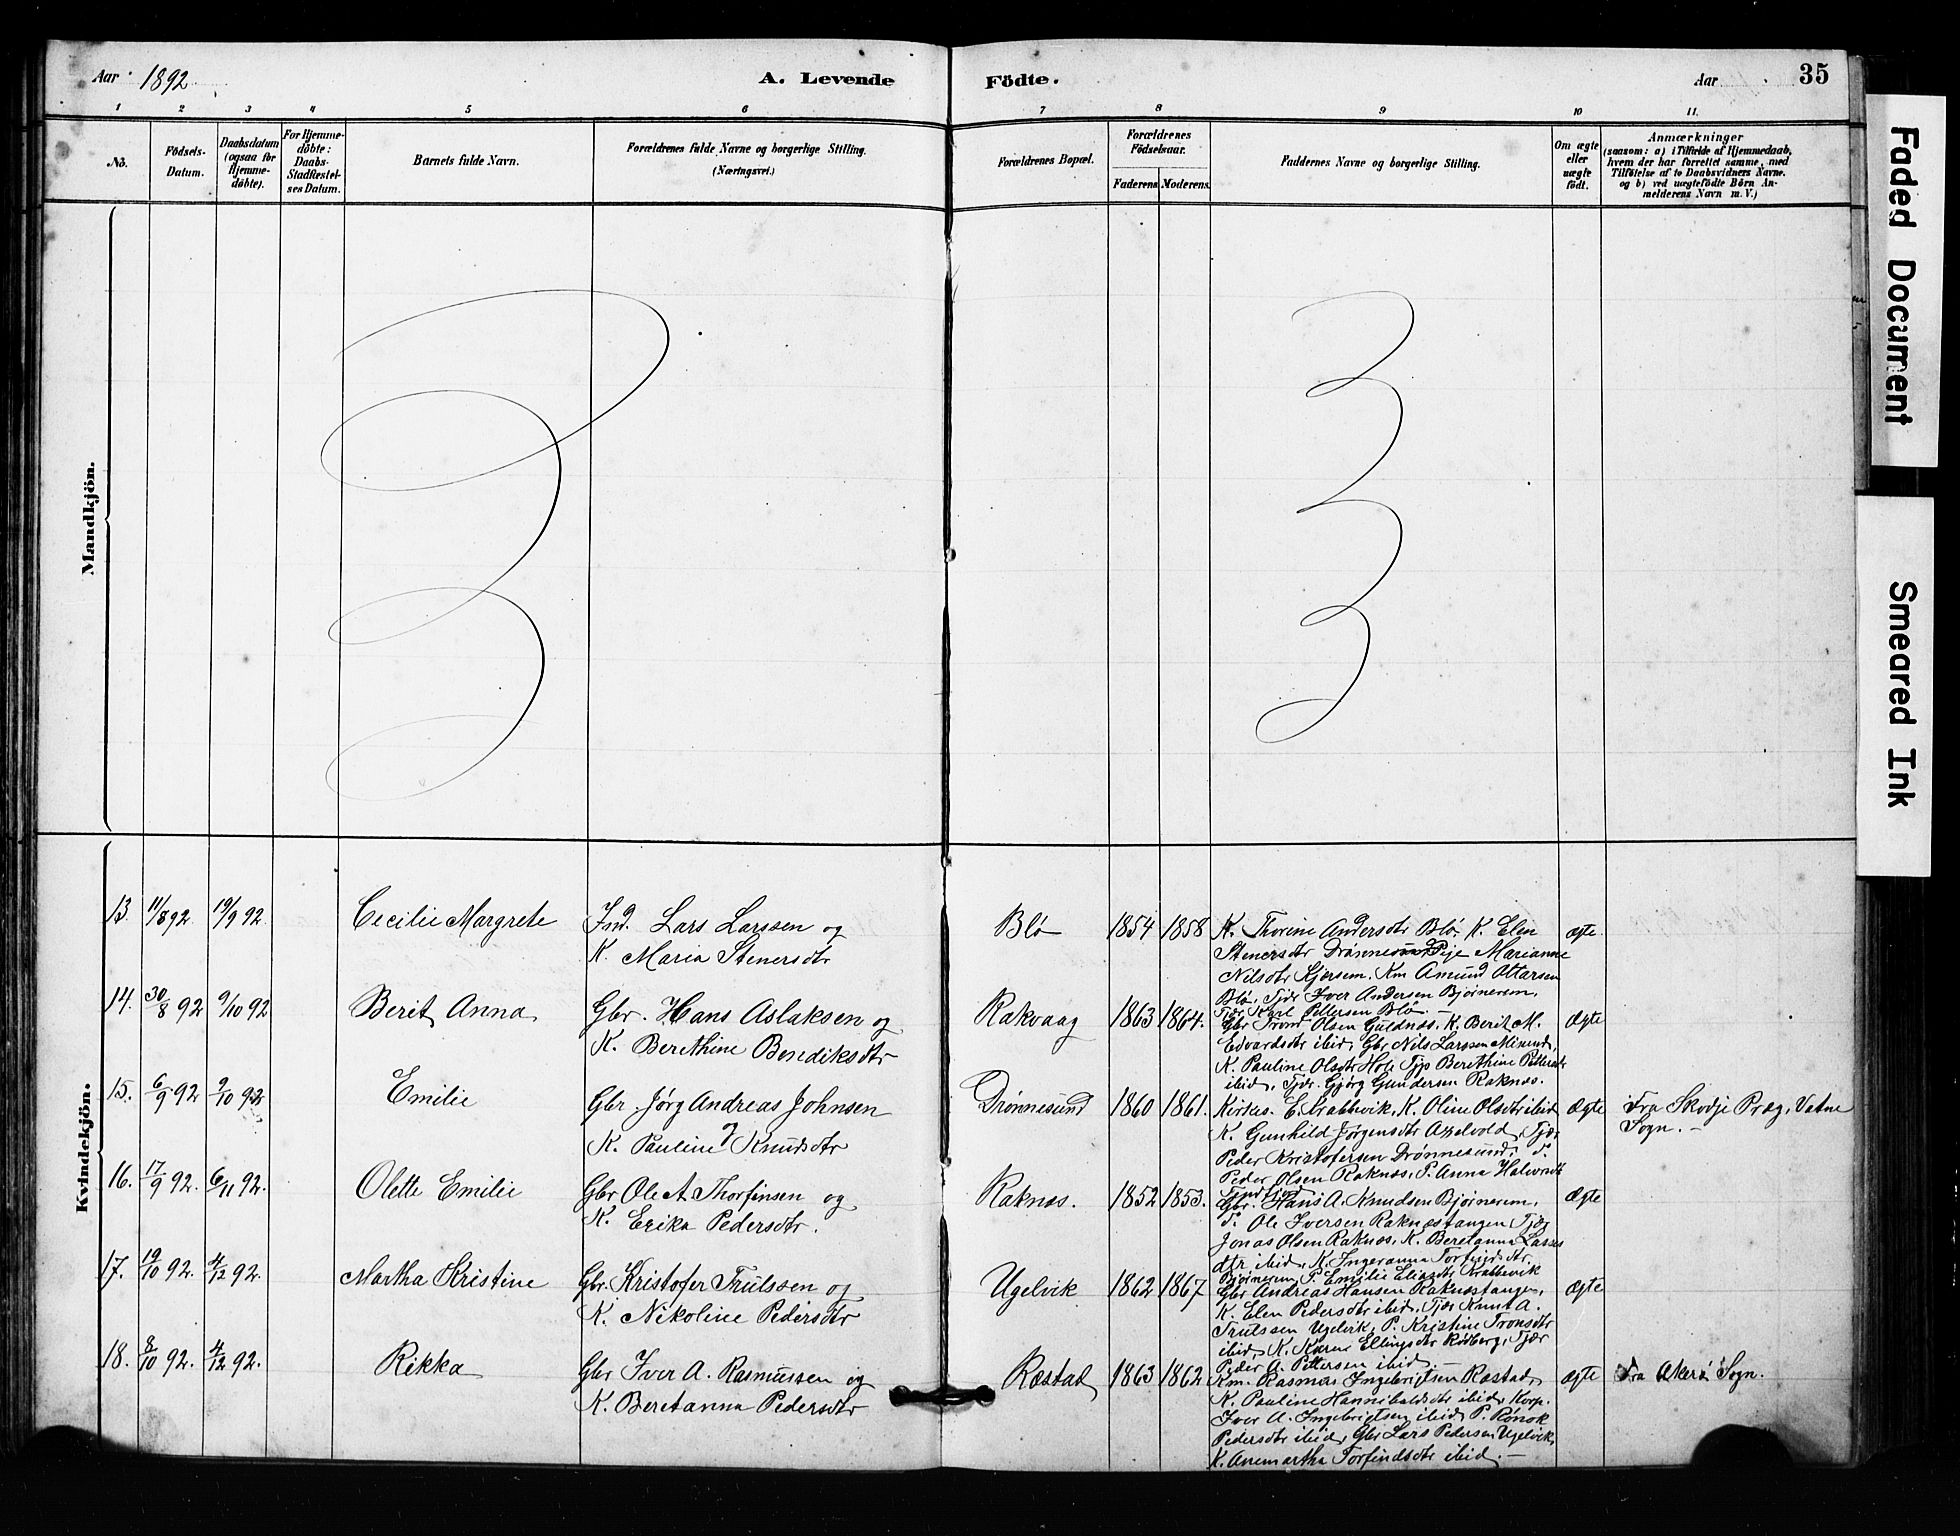 Aar 1892
A. Levende
Födte.
Aar
35
1 2 3 4 5 6 7 8 9 10 11.
No.
Födsels-
Datum.
Daabsdatum
(ogsaa for
Hjemme-
döbte).
For Hjemme-
döbte:
Daabs-
Stadfæstel-
ses Datum.
Barnets fulde Navn.
Forældrenes fulde Navne og borgerlige Stilling.
(Næringsvei.)
Forældrenes Bopæl.
Forældrenes
Födselsaar.
Faderens Moderens.
Faddernes Navne og borgerlige Stilling.
Om ægte
eller
uægte
födt.
Anmærkninger
(saasom: a) i Tilfælde af Hjemmedaab,
hvem der har forrettet samme, med
Tilföielse af to Daabsvidners Navne.
og b) ved uægtefödte Börn An-
melderens Navn m. V.)
Mandkjön.
Kvindekjön.
13. 11/8 92. 19/9 92. Cecilie Margrete
Ind. Lars Larssen og
K. Maria Stenersdtr
Blø 1854 1858
K. Thorine Andersdtr Blø. K. Elen
Stenersdtr Drønnesund Pige Marianne
Nilsdtr Kjørsem, Km Amund Ottarsen
Blø, Tjdr Iver Andersen Bjørnerem,
Tjdr Karl Pettersen Blø. —
ægte.
14. 30/8 92 9/10 92 Berit Anna
Gbr. Hans Aslaksen og
K. Berethine Bendiksdtr
Rakvaag 1863 1864.
Gbr Trond Olsen Guldnæs. K. Berit M.
Edvardsdtr ibid, Gbr Nils Larssen Misund,
K. Pauline Olsdtr Hol, Tjp Berethine Pettersdtr
ibid, Tjdr. Gjørg Gundersen Raknæs.
Ægte
15. 6/9 92 9/10 92 Emilie
Gbr Jørg Andreas Johnsen
K. Pauline J Knudsdtr
Drønnesund 1860 1861.
Kirkes. E. Krabbevik, K. Oline Olsdtr ibid
K. Gunhild Jørgensdtr Axelvold, Tjdr
Peder Kristofersen Drønnesund, T.
Peder Olsen Raknæs, P. Anna Halvorsdtr
Ægte
Fra Skodje Præg, Vatne
Sogn. —
16. 17/9 92. 6/11 92. Olette Emilie
Gbr Ole A. Thorfinsen og
K. Erika Pedersdtr.
Raknæs. 1852 1853.
Gbr. Hans A. Knudsen Bjørnerem,
T. Ole Iversen Raknæstangen, Tjdr
Jonas Olsen Raknæs, K. Beretanna Lasses
dtr ibid, K. Ingeranna Torfindsdtr
Bjørnerem P. Emilie Eliasdtr Krabbevik
Ægte
17. 19/10 92. 4/12 92. Martha Kristine
Gbr. Kristofer Trulssen og
K. Nikoline Pedersdtr
Ugelvik 1862 1867
Gbr Andreas Hansen Raknæstangen,
K. Elen Pedersdtr ibid, Tjdr Knut A.
Trulssen Ugelvik, P. Kristine Tronsdtr
ibid, K. Karen Ellingsdtr Rødberg, Tjdr
Peder A. Pettersen ibid. —
Ægte
18. 8/10 92. 4/12 92. Rikka
Gbr Iver A. Rasmussen og
K. Beretanna Pedersdtr
Røstad 1863 1862
Km. Rasmus Ingebrigtsen Røstad,
K. Pauline Hannibaldsdtr ibid, Korp.
Iver A. Ingebrigtsen ibid, P. Rønok
Pedersdtr ibid, Gbr Lars Pedersen Ugelvik,
K. Anemartha Torfindsdtr ibid. —
Ægte
Fra Akerø Sogn.
Faded Document
Smeared Ink